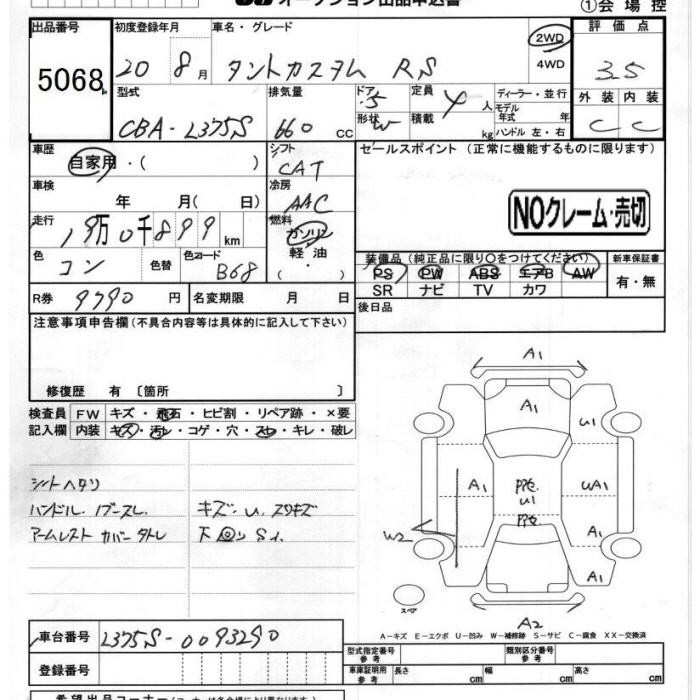 オークション出品申込書
①会場控
出品番号 初度登録年月 車名・グレード 2WD 評価点
5068 20 8月 タントカスタム RS 4WD 3.5
型式 排気量 ドア 5 形状 W 定員 4 人 積載 kg ディーラー・並行 モデル年式 年 ハンドル 左・右 外装 内装
CBA-L375S 660 CC C C
車歴 自家用・( ) シフト CAT セールスポイント (正常に機能するものに限ります)
車検 年 月( 日) 冷房 AAC NOクレーム・売切
走行 19万0千899km 燃料 ガソリン 軽油
色 コン 色替 色コード B68 装備品(純正品に限り○をつけてください) 新車保証書
PS PW ABS エアB AW 有・無
SR ナビ TV カワ
R券 9790 円 名変期限 月 日 後日品
注意事項申告欄(不具合内容等は具体的に記入して下さい)
修復歴 有 〔箇所 〕
検査員 FW キズ・飛石・ヒビ割・リペア跡・×要
記入欄 内装 キズ・汚レ・コゲ・穴・スレ・キレ・破レ
シートヘタリ
ハンドル.ノブスレ. キズ.U.スリキズ
アームレスト カバー タトレ 下回リ S1.
A1
A1
U1
A1 PPt. U1 PPt UA1
W2 A1
A1
スペア
A2
A-キズ E-エクボ U-凹み W-補修跡 S-サビ C-腐食 XX-交換済
車台番号 L375S-0093290
型式指定番号 参考 類別区分番号 参考
登録番号 車庫証明用 参考 長さ cm 幅 cm 高さ cm
希望出品コーナー